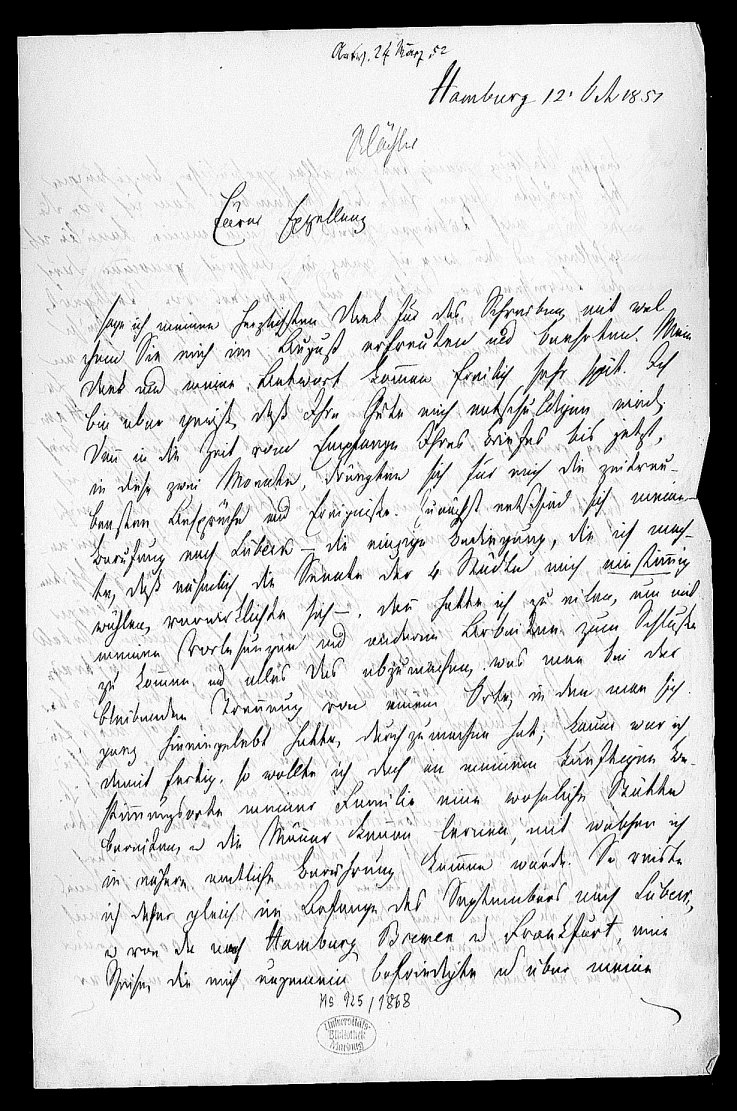 Antw. 24 März 52
Hamburg 12. Oct 1851
Wächter
Eurer Exzellenz
sage ich meinen herzlichsten Dank für das Schreiben, mit wel
chem Sie mich im August erfreuten und beehrten. Mein
Dank und meine Antwort kommen freilich sehr spät. Ich
bin aber gewiß, daß Ihre Güte mich entschuldigen wird,
denn in der Zeit vom Empfange Ihres Briefes bis jetzt,
in diese zwei Monate, drängten sich für mich die zeitrau-
bensten Ansprüche und Ereignisse. Zunächst entschied sich meine
Berufung nach Lübeck – die einzige Bedingung, die ich mach-
te, daß nehmlich die Senate der 4 Städte mich einstimig
wählen, verwirklichte sich –, dann hatte ich zu eilen, um mit
meinen Vorlesungen und anderen Arbeiten zum Schlusse
zu kommen und alles das abzumachen, was man bei der
bleibenden Trennung von einem Orte, in den man sich
ganz hineingelebt hatte, durchzumachen hat; kaum war ich
damit fertig, so wollte ich doch an meinem künftigen Be-
stimmungsorte meiner Familie eine wohnliche Stätte
bereiten, u die Männer kennen lernen, mit welchen ich
in nähere amtliche Berührung kommen würde. So reiste
ich daher gleich im Anfange des Septembers nach Lübeck,
u von da nach Hamburg Bremen u Frankfurt, eine
Reise, die mich ungemein befriedigte u über meine
Ms 925/1868
Universitäts
Bibliothek
Marburg